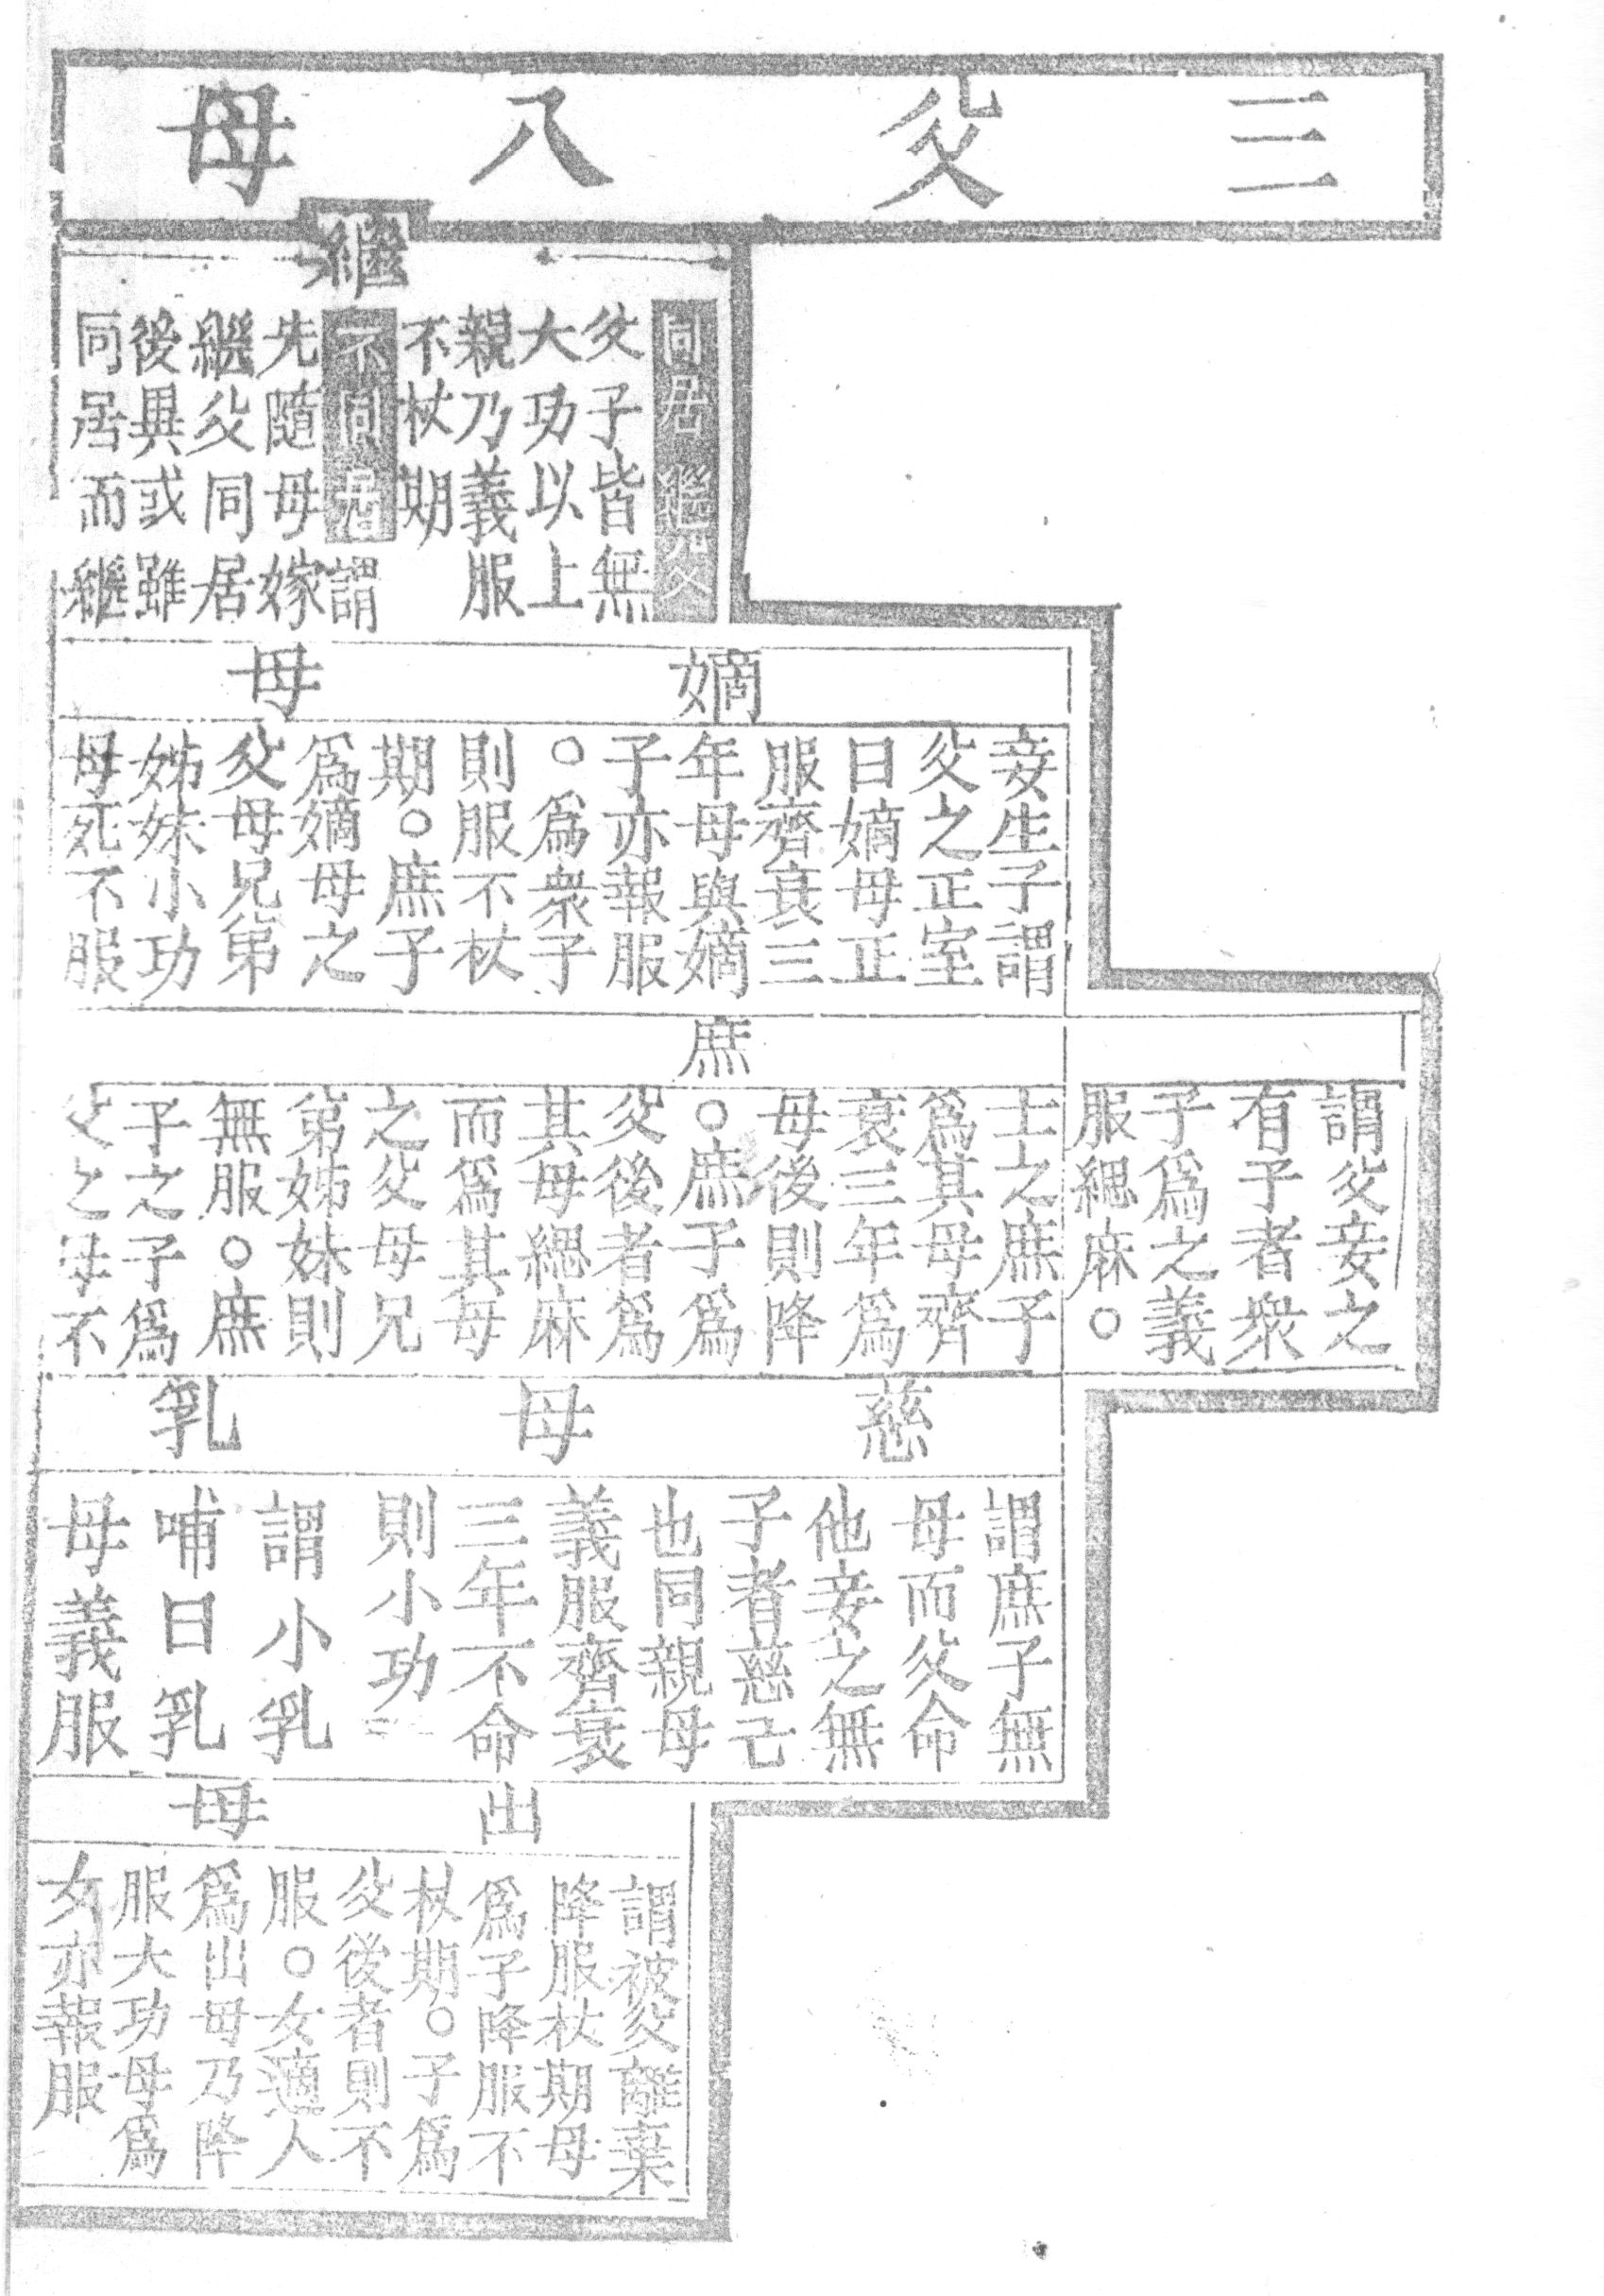 三父八母
繼
同居繼父
父子皆無
大功以上
親乃義服
不杖期
不同居謂
先隨母嫁
繼父同居
後異或雖
同居而繼
嫡母
妾生子謂
父之正室
曰嫡母正
服齊衰三
年母與嫡
子亦報服
○爲衆子
則服不杖
期○庶子
爲嫡母之
父母兄弟
姊妹小功
母死不服
庶
謂父妾之
有子者衆
子爲之義
服緦麻○
士之庶子
爲其母齊
衰三年爲
母後則降
○庶子爲
父後者爲
其母緦麻
而爲其母
之父母兄
弟姊妹則
無服○庶
子之子爲
父之母不
慈母乳
謂庶子無
母而父命
他妾之無
子者慈己
也同親母
義服齊衰
三年不命
則小功
謂小乳
哺曰乳
母義服
出母
謂被父離棄
降服杖期母
爲子降服不
杖期○子爲
父後者則不
服○女適人
爲出母乃降
服大功母爲
女亦報服